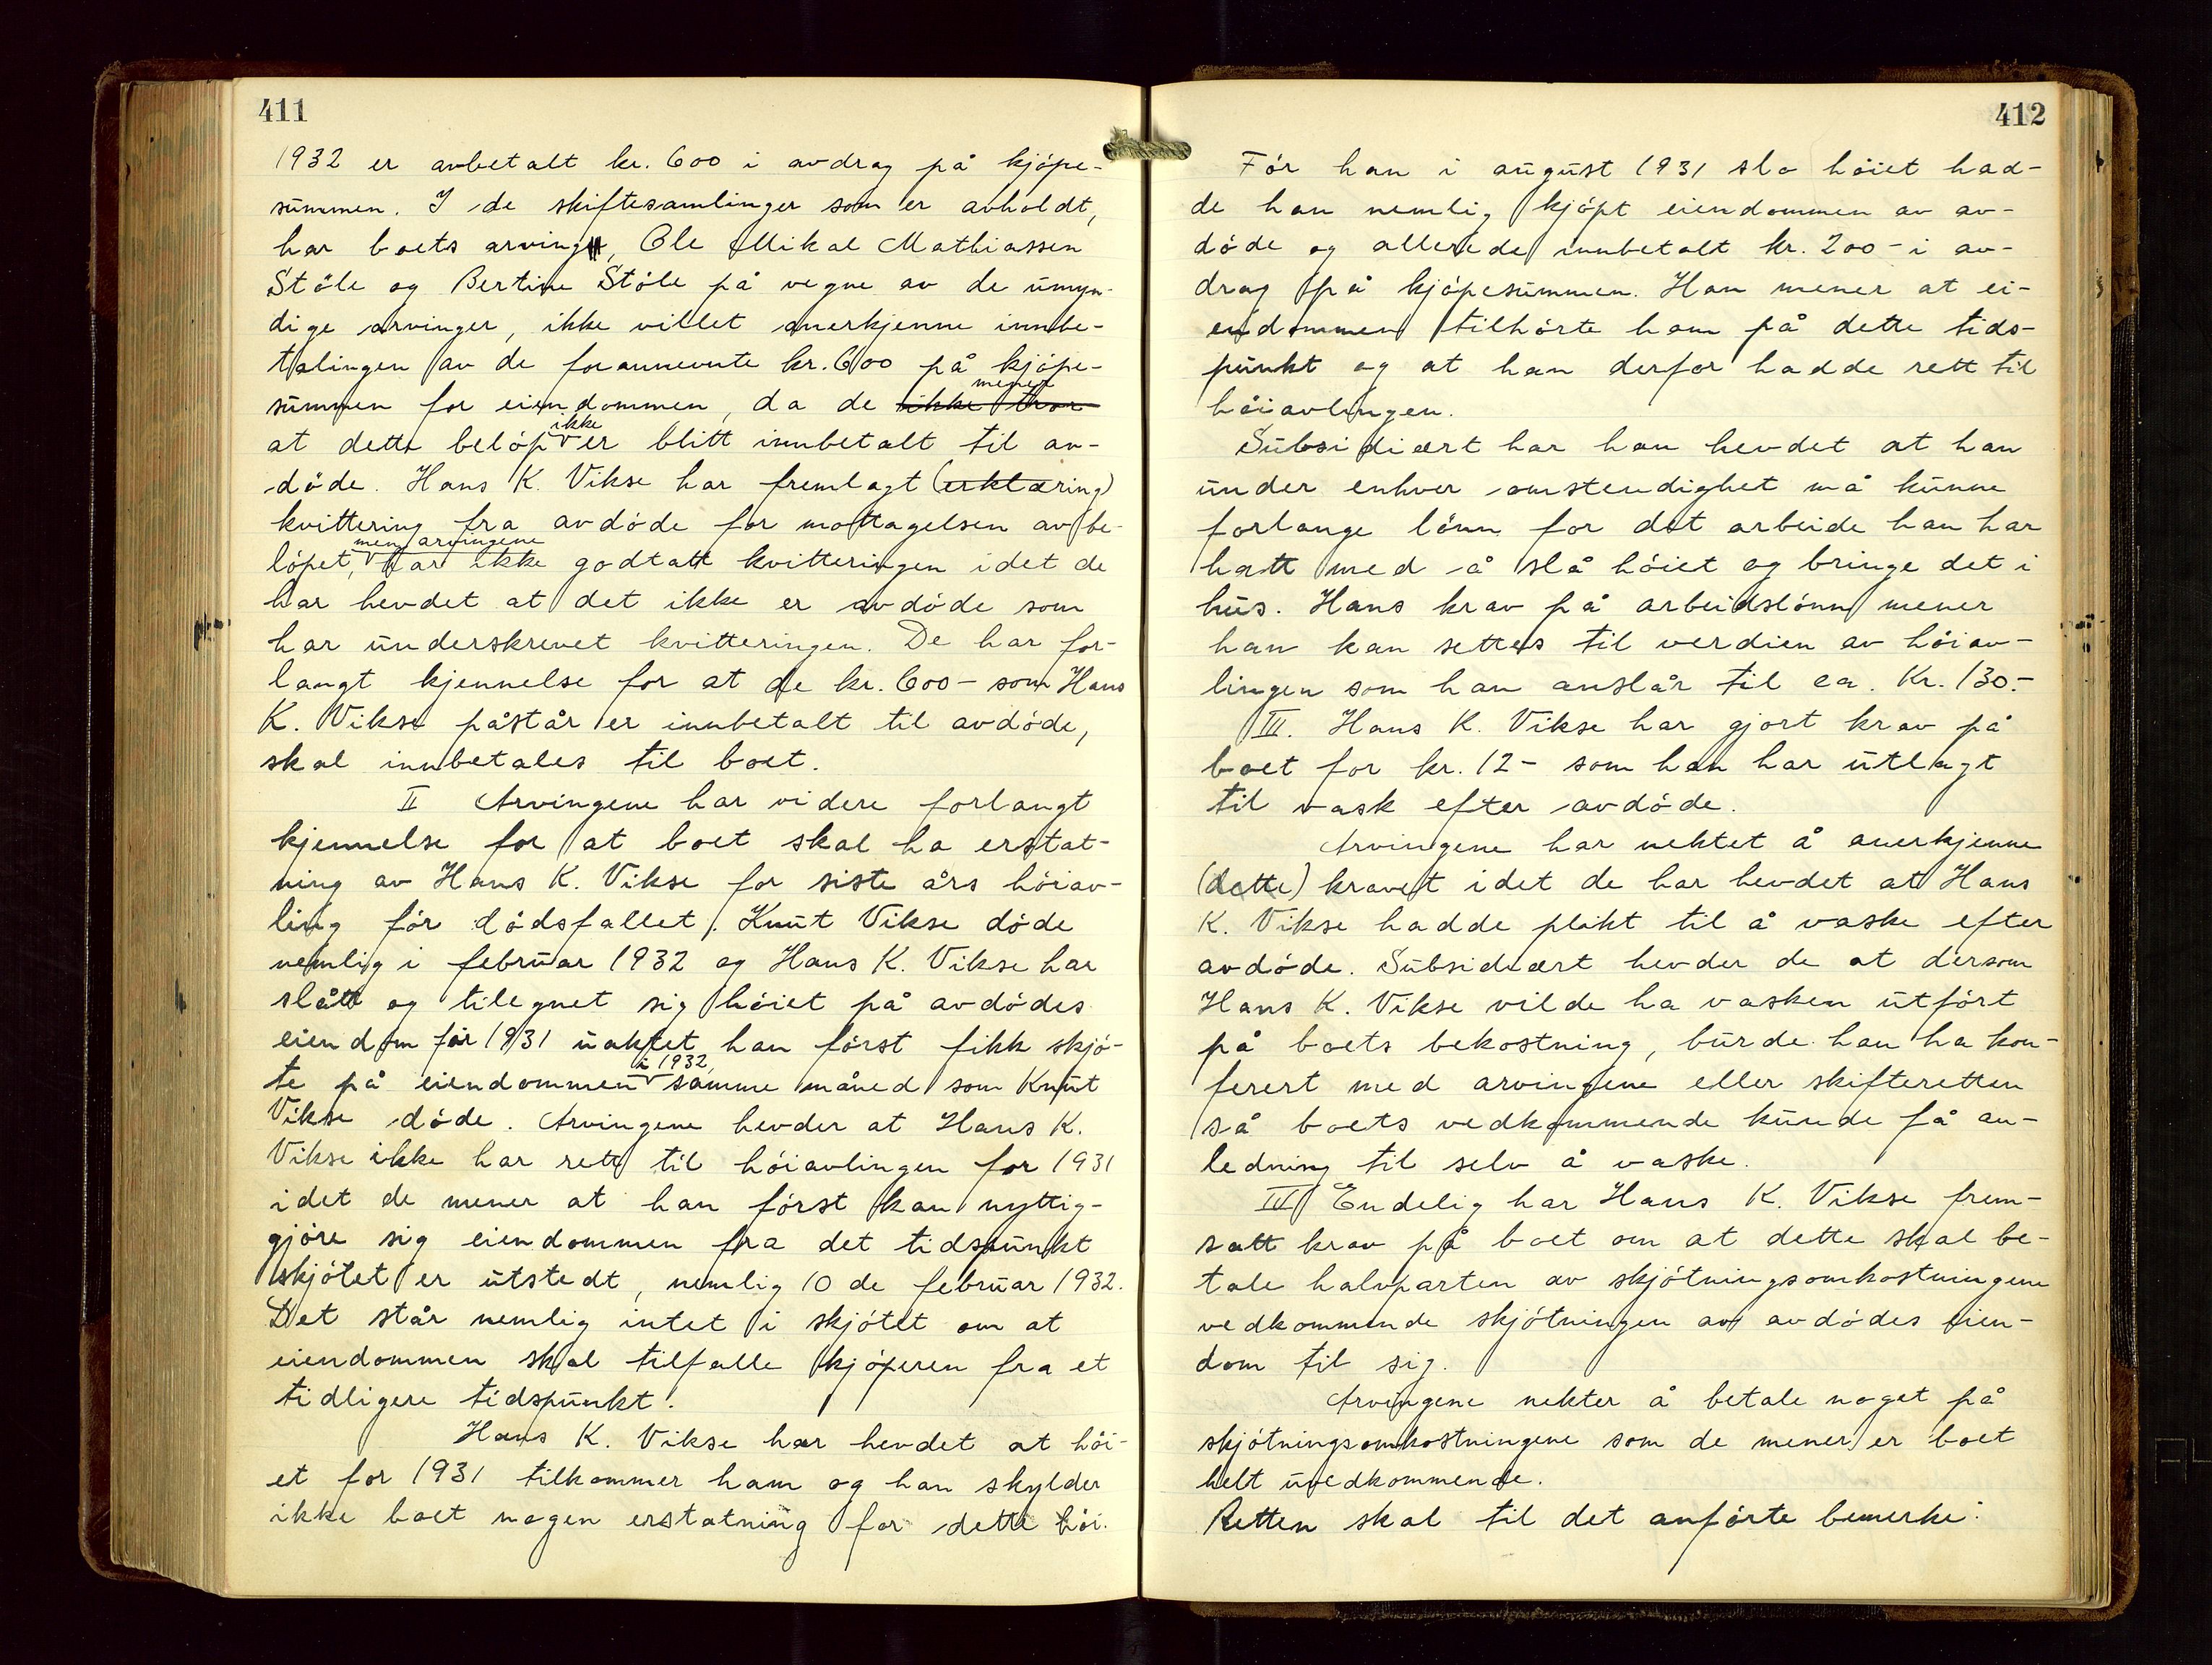 411
1932 er avbetalt kr. 600 i avdrag på kjøpe-
summen. I de skiftesamlinger som er avholdt,
har boets arving, Ole Mikal Mathiassen
Støle og Bertine Støle på vegne av de umyn-
dige arvinger, ikke villet anerkjenne innbe-
talingen av de forannevnte kr. 600 på kjøpe-
summen for eiendommen, da de ikke tror mener
at dette beløp ikke er blitt innbetalt til av-
døde. Hans K. Vikse har fremlagt (erklæring)
kvittering fra avdøde for mottagelsen av be-
løpet, men arvingene har ikke godtatt kvitteringen idet de
har hevdet at det ikke er avdøde som
har underskrevet kvitteringen. De har for-
langt kjennelse for at de kr. 600 - som Hans
K. Vikse påstår er innbetalt til avdøde,
skal innbetales til boet.
II Arvingene har videre forlangt
kjennelse for at boet skal ha erstat-
ning av Hans K. Vikse for siste års høiav-
ling før dødsfallet. Knut Vikse døde
nemlig i februar 1932 og Hans K. Vikse har
slått og tilegnet sig høiet på avdødes
eiendom før 1931 uaktet han først fikk skjø-
te på eiendommen i 1932, samme måned som Knut
Vikse døde. Arvingene hevder at Hans K.
Vikse ikke har rett til høiavlingen for 1931
idet de mener at han først kan nyttig-
gjøre sig eiendommen fra det tidspunkt
skjøtet er utstedt, nemlig 10 de februar 1932.
Det står nemlig intet i skjøtet om at
eiendommen skal tilfalle kjøperen fra et
tidligere tidspunkt.
Hans K. Vikse har hevdet at høi-
et for 1931 tilkommer ham og han skylder
ikke boet nogen erstatning for dette høi.
412
Før han i august 1931 slo høiet had-
de han nemlig kjøpt eiendommen av av-
døde og allerede innbetalt kr. 200 - i av-
drag på kjøpesummen. Han mener at ei-
endommen tilhørte ham på dette tids-
punkt og at han derfor hadde rett til
høiavlingen.
Subsidiært har han hevdet at han
under enhver omstendighet må kunne
forlange lønn for det arbeide han har
hatt med å slå høiet og bringe det i
hus. Hans krav på arbeidslønn mener
han kan settes til verdien av høiav-
lingen som han anslår til ca. Kr. 130.-
III. Hans K. Vikse har gjort krav på
boet for kr. 12 - som han har utlagt
til vask efter avdøde.
Arvingene har nektet å anerkjenne
(dette) kravet idet de har hevdet at Hans
K. Vikse hadde plikt til å vaske efter
avdøde. Subsidiært hevder de at dersom
Hans K. Vikse vilde ha vasken utført
på boets bekostning, burde han ha kon-
ferert med arvingene eller skifteretten
så boets vedkommende kunde få an-
ledning til selv å vaske.
IV Endelig har Hans K. Vikse frem-
satt krav på boet om at dette skal be-
tale halvparten av skjøtningsomkostningene
vedkommende skjøtningen av avdødes eien-
dom til sig.
Arvingene nekter å betale noget på
skjøtningsomkostningene som de mener er boet
helt uvedkommende.
Retten skal til det anførte bemerke: